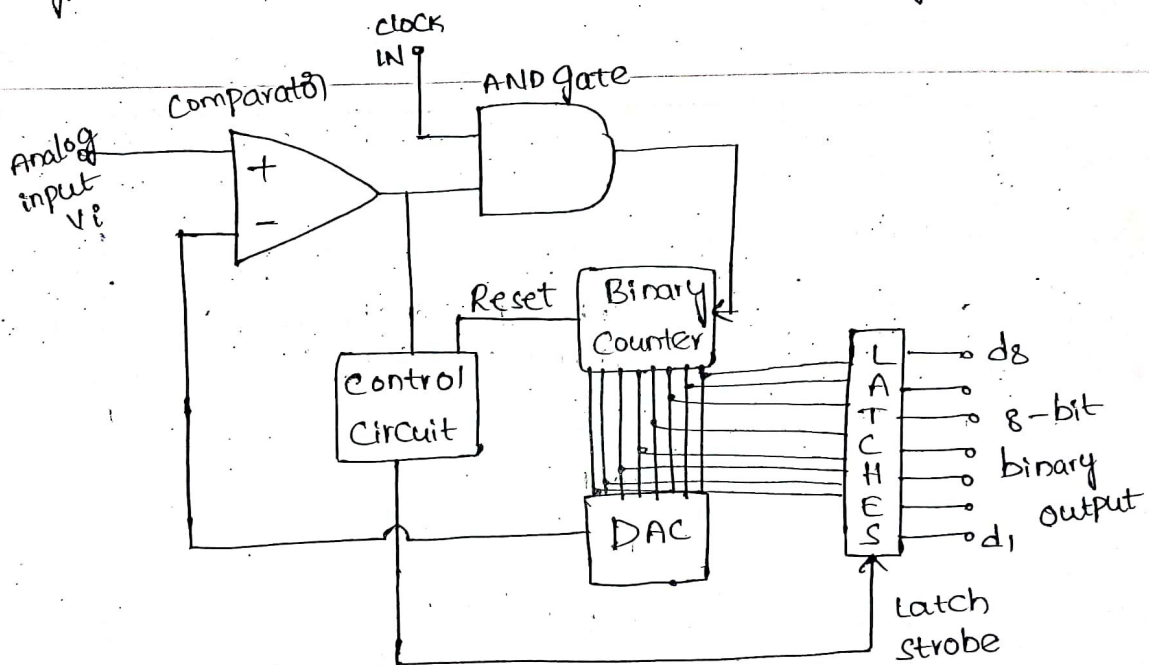 Clock
IN
AND gate
Comparator
Analog
input
Vi
+
-
Reset
Binary
Counter
Control
Circuit
DAC
L
A
T
C
H
E
S
d8
8-bit
binary
output
d1
Latch
strobe